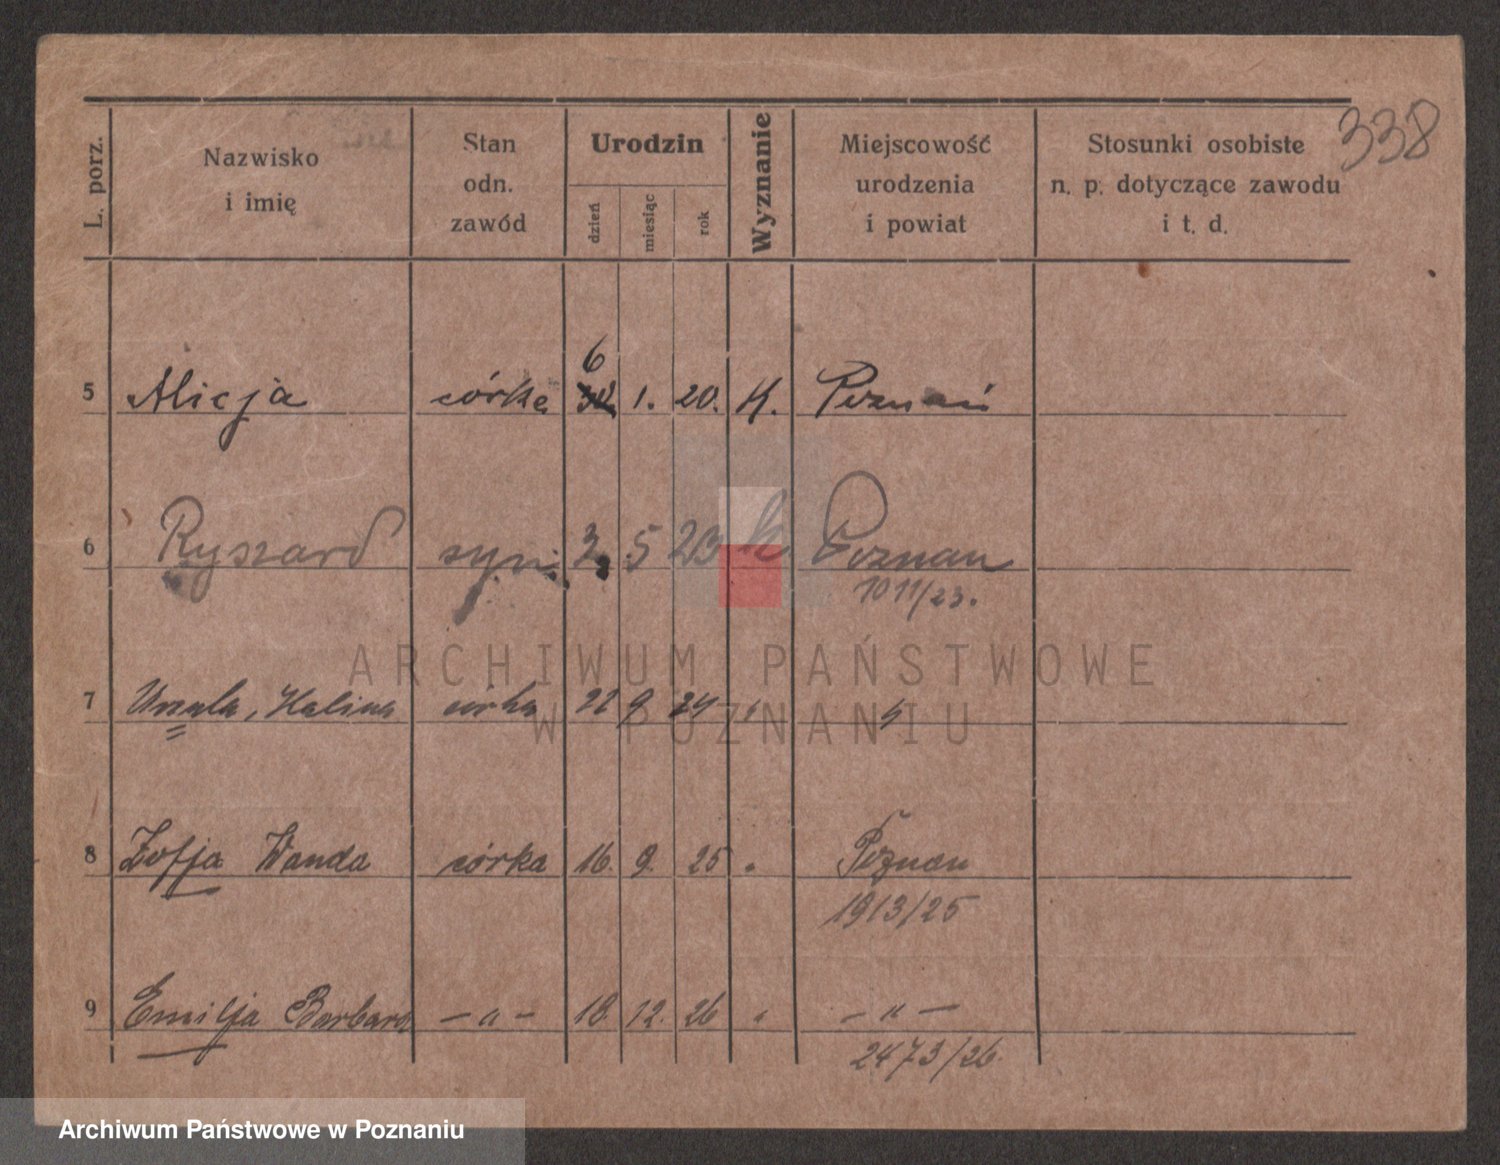 338
L. porz.
Nazwisko i imię
Stan odn. zawód
Urodzin
dzień
miesiąc
rok
Wyznanie
Miejscowość urodzenia i powiat
Stosunki osobiste n. p. dotyczące zawodu i t. d.
6
5 Alicja córka 1. 20. K. Poznań
6 Ryszard syn 3 5 23 k Poznan
1011/23.
ARCHIWUM PAŃSTWOWE
7 Urszula, Halina córka 22 9 24 " "
W POZNANIU
8 Zofja Wanda córka 16. 9. 25 " Poznan
1913/25
9 Emilja Barbara — " — 18. 12. 26 " — " —
2473/26
Archiwum Państwowe w Poznaniu